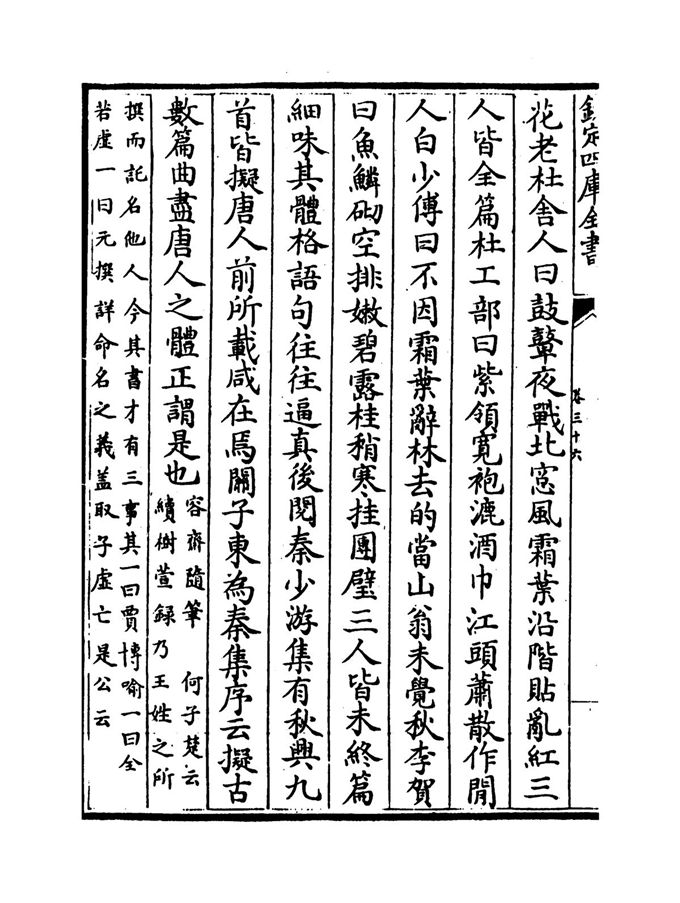 欽定四庫全書
卷三十六
花老杜舍人曰鼓鼙夜戰北窓風霜葉沿階貼亂紅三
人皆全篇杜工部曰紫領寛袍漉酒巾江頭蕭散作閒
人白少傅曰不因霜葉辭林去的當山翁未覺秋李賀
曰魚鱗砌空排嫩碧露桂稍寒挂團璧三人皆未終篇
細味其體格語句往往逼真後閱秦少游集有秋興九
首皆擬唐人前所載咸在焉關子東為秦集序云擬古
數篇曲盡唐人之體正謂是也
容齋隨筆 何子楚云
續樹萱録乃王姓之所
撰而託名他人今其書才有三事其一曰賈博喻一曰全
若虛一曰元撰詳命名之義盖取子虛亡是公云